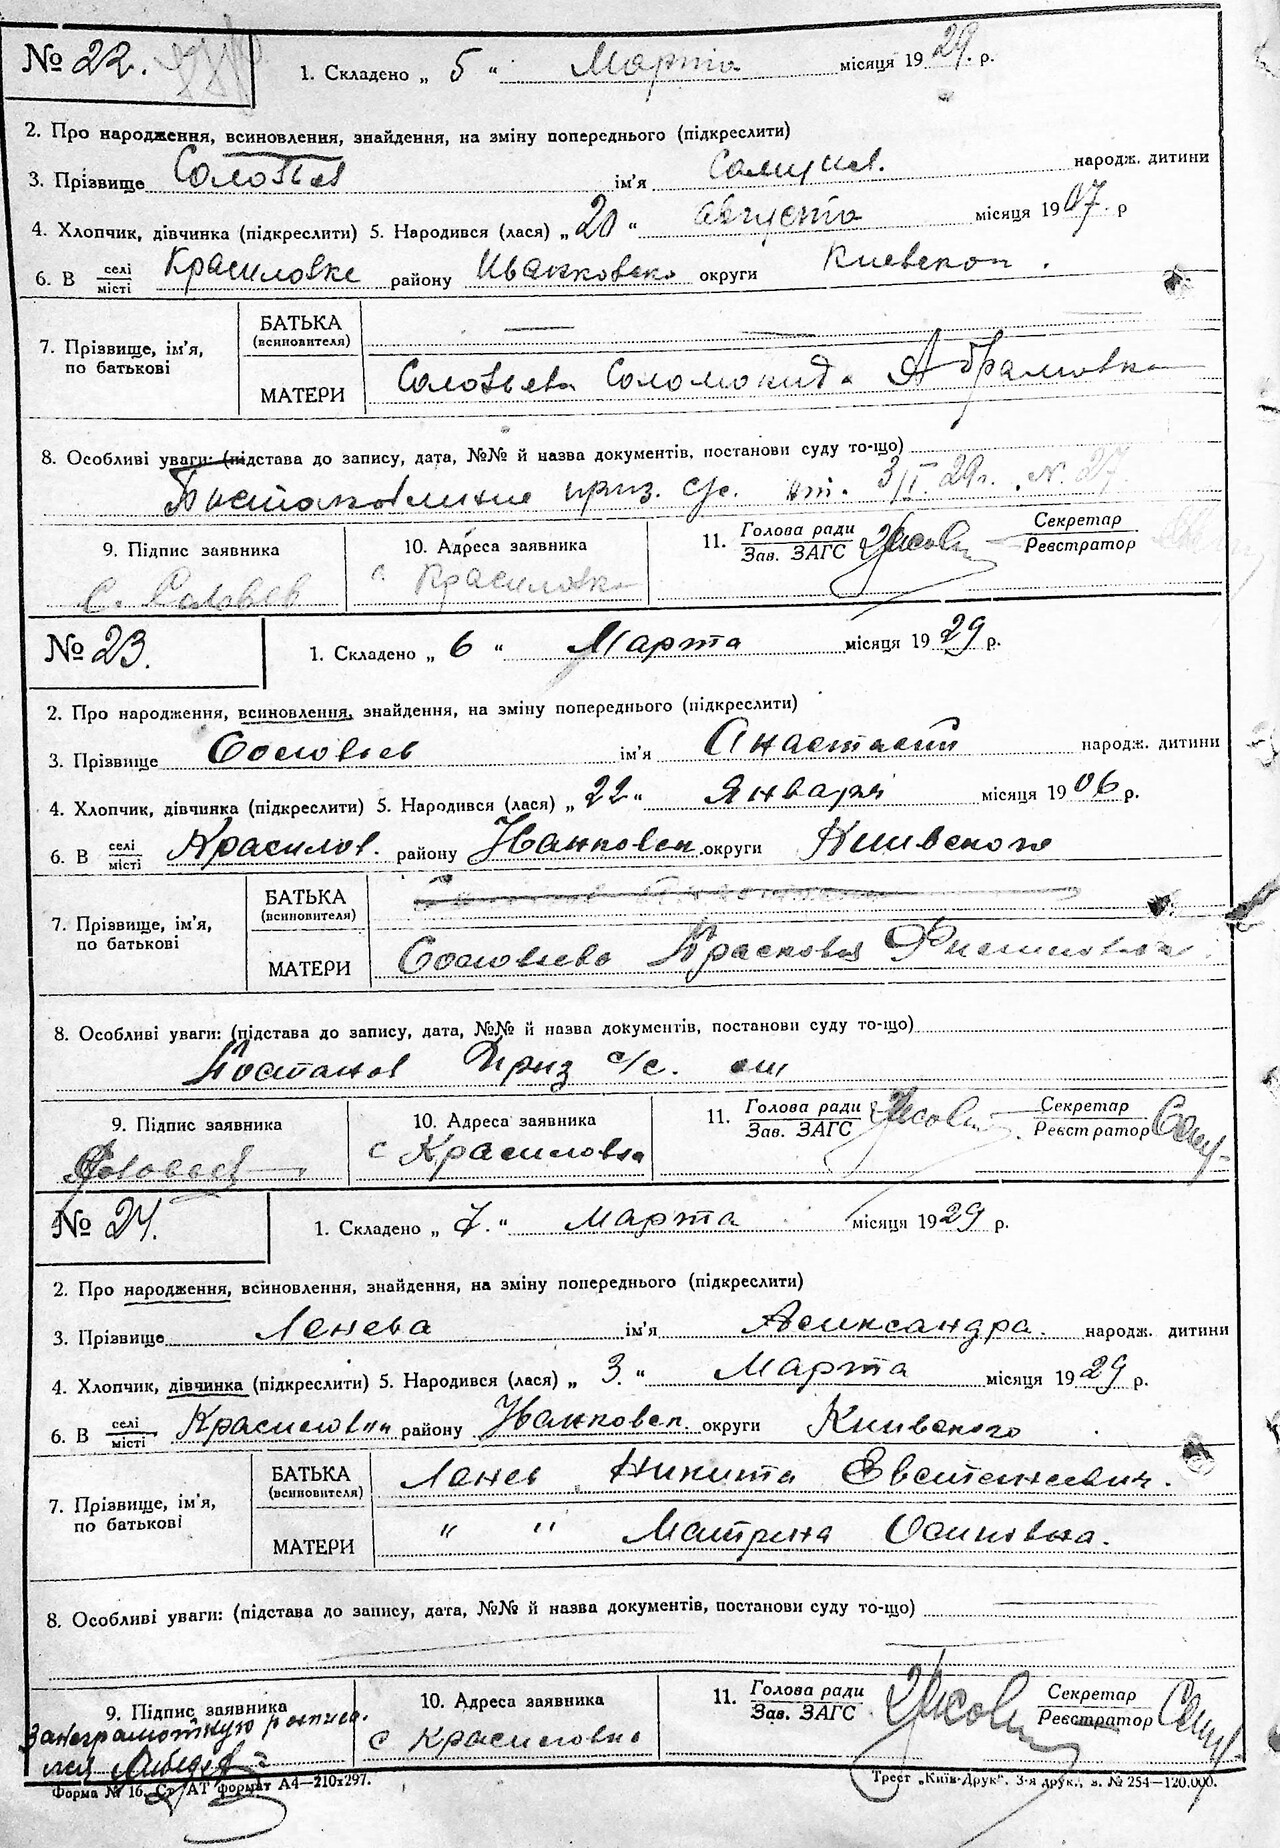 № 22.
1. Складено „ 5 “ Марта місяця 1929. р.
2. Про народження, всиновлення, знайдення, на зміну попереднього (підкреслити)
3. Прізвище Соловьев ім'я Самуил. народж. дитини
4. Хлопчик, дівчинка (підкреслити) 5. Народився (лася) „ 20 “ августа місяця 1907. р
6. В селі/місті Красиловке району Иванковско округи Киевской.
7. Прізвище, ім'я, по батькові
БАТЬКА (всиновителя) —
МАТЕРИ Соловьева Соломонида Абрамовна
8. Особливі уваги: (підстава до запису, дата, №№ й назва документів, постанови суду то-що)
Постановление през. с/с. от. 3/I 29 г. N. 27
9. Підпис заявника С. Салвьев
10. Адреса заявника с. Красиловка
11. Голова ради/Зав. ЗАГС Секретар/Реєстратор
№ 23.
1. Складено „ 6 “ Марта місяця 1929 р.
2. Про народження, всиновлення, знайдення, на зміну попереднього (підкреслити)
3. Прізвище Соловьев ім'я Анастасий народж. дитини
4. Хлопчик, дівчинка (підкреслити) 5. Народився (лася) „ 22 “ Января місяця 1906 р.
6. В селі/місті Красилов. району Иванковск. округи Киивского
7. Прізвище, ім'я, по батькові
БАТЬКА (всиновителя)
МАТЕРИ Соловьева Прасковья Филиповна.
8. Особливі уваги: (підстава до запису, дата, №№ й назва документів, постанови суду то-що)
Постанов През с/с. от
9. Підпис заявника
10. Адреса заявника с Красиловка
11. Голова ради/Зав. ЗАГС Секретар/Реєстратор
№ 24.
1. Складено „ 7. “ марта місяця 1929 р.
2. Про народження, всиновлення, знайдення, на зміну попереднього (підкреслити)
3. Прізвище Ленева ім'я Александра. народж. дитини
4. Хлопчик, дівчинка (підкреслити) 5. Народився (лася) „ 3. “ Марта місяця 1929 р.
6. В селі/місті Красиловки району Иванковск. округи Киивского
7. Прізвище, ім'я, по батькові
БАТЬКА (всиновителя) Ленев Никита Евстенеевич.
МАТЕРИ " " Матрена Осиповна.
8. Особливі уваги: (підстава до запису, дата, №№ й назва документів, постанови суду то-що)
9. Підпис заявника
За неграмотную росписа.
лся Лебедев
10. Адреса заявника с Красиловка
11. Голова ради/Зав. ЗАГС Секретар/Реєстратор
Форма № 16. Ст АТ формат А4—210х297.
Трест „Київ-Друк“. 3-я друк., з. № 254—120.000.